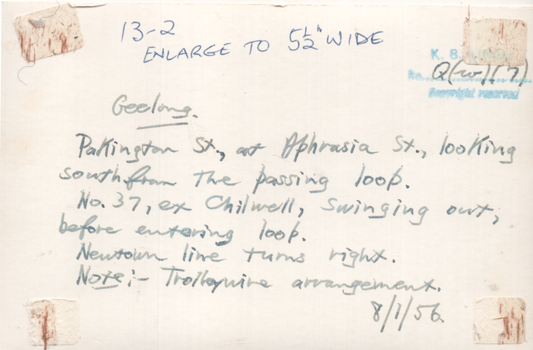 13-2
ENLARGE TO 5½" WIDE
K. B.
No. Q(w)(7)
Copyright reserved
Geelong.
Pakington St., at Aphrasia St., looking
south from the passing loop.
No. 37, ex Chilwell, swinging out,
before entering loop.
Newtown line turns right.
Note:- Trolleywire arrangement.
8/1/56.